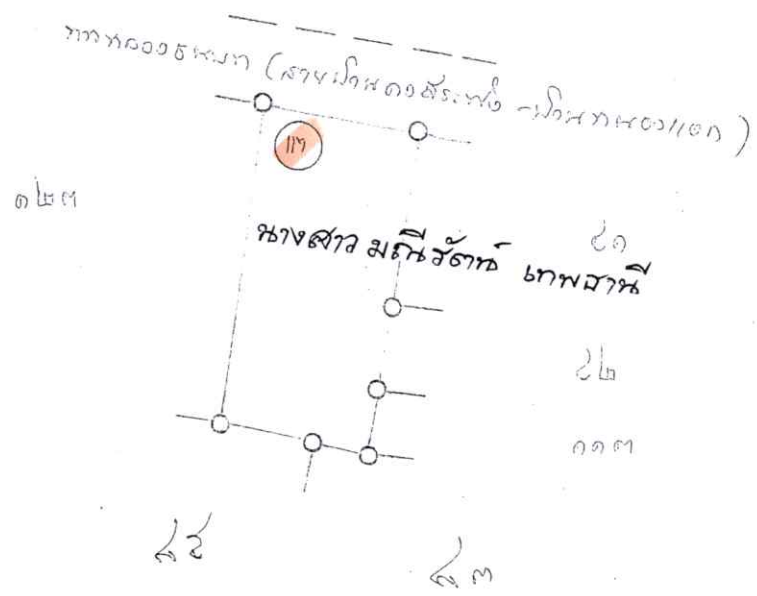 ทางหลวงชนบท (สายบ้านดงสระพัง - บ้านหนองแดก)
๑๒๓
นางสาว มณีรัตน์ เทพธานี
๔๑
๔๒
๑๑๓
๔๔
๔๓